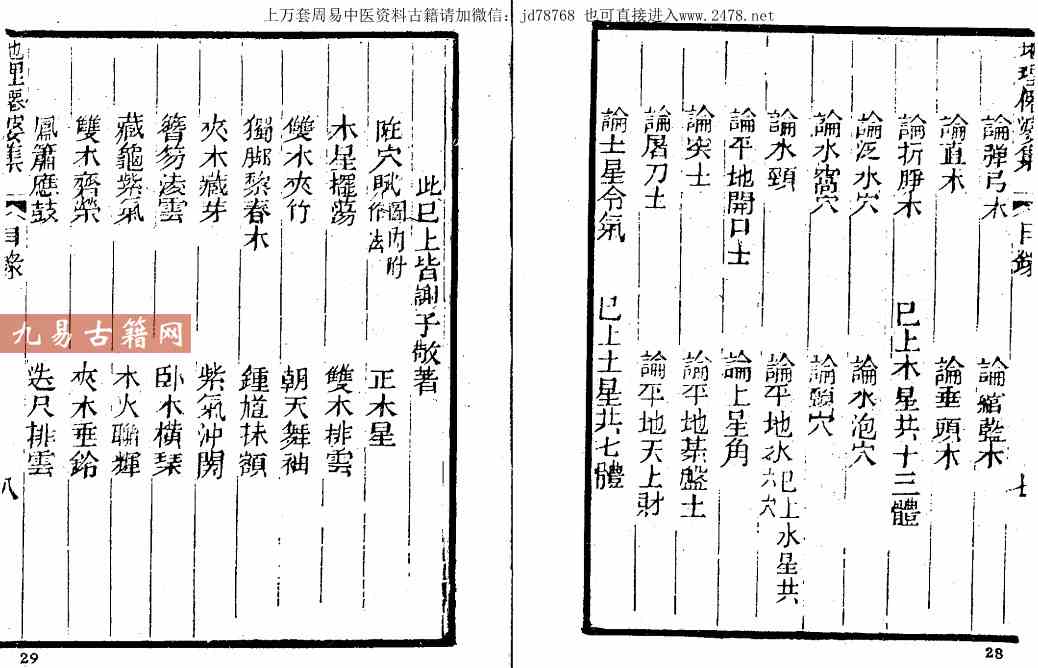 上万套周易中医资料古籍请加微信：jd78768 也可直接进入www.2478.net
論彈弓木
論綰藍木
論直木
論垂頭木
論折脖木
已上木星共十三體
論泛水穴
論水泡穴
論水窩穴
論頸穴
論水頸
論平地水六穴
已上水星共
論平地開口土
論土星角
論突土
論平地棊盤土
論屠刀土
論平地天上財
論土星令氣
已上土星共七體
目錄
七
28
此已上皆謝子敬著
穴賦圖內附作法
正木星
木星擺蕩
雙木排雲
雙木夾竹
朝天舞袖
獨腳黎春木
鍾馗抹額
夾木藏芽
紫氣沖開
簪笏凌雲
卧木橫琴
藏龜紫氣
木火聯輝
雙木齊榮
夾木垂鈴
鳳簫應鼓
迭尺排雲
目錄
八
29
九易古籍网